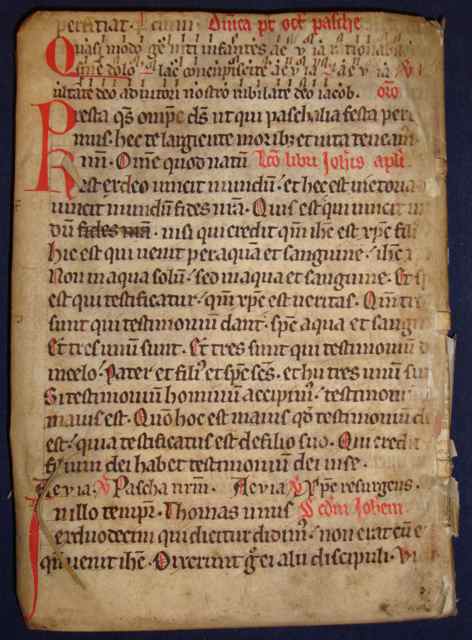 Dnica pt oct pasche
Quasi modo geniti infantes ae v ia rationabi
sine dolo lac concupiscite ae v ia ae v ia
ultate deo adiutori nostro iubilate deo iacob. oro
Presta qs omps ds ut qui paschalia festa per
imus. hec te largiente moribz et vita teneam
Omne quod natu Lco libri Johis apli
Kast ex deo vincit mundu. et hec est victoria
vincit mundu fides nra. Quis est qui vincit m
du fides nra. nisi qui credit qm ihc est xpc fili
hic est qui venit per aquam et sanguine. ihc x
Non in aqua solu. sed in aqua et sanguine. Et sp
est qui testificatur. qm xpc est veritas. Qm tr
sunt qui testimoniu dant. spc aqua et sang
Et tres unu sunt. Et tres sunt qui testimoniu d
in celo. Pater et fili et spc scs. et hii tres unu su
Si testimoniu hominu accipim. testimoni
maius est. Qm hoc est maius qd testimoniu de
est. quia testificatus est de filio suo. Qui credit
filium dei habet testimoniu dei in se.
Ae v ia. V Pascha nrm. Ae v ia V Xpc resurgens.
In illo tempr. Thomas unus Scdm Johem
ex duodecim qui dicitur didim. non erat cu e
qn venit ihc. Dixerunt g ei alii discipuli. Vi